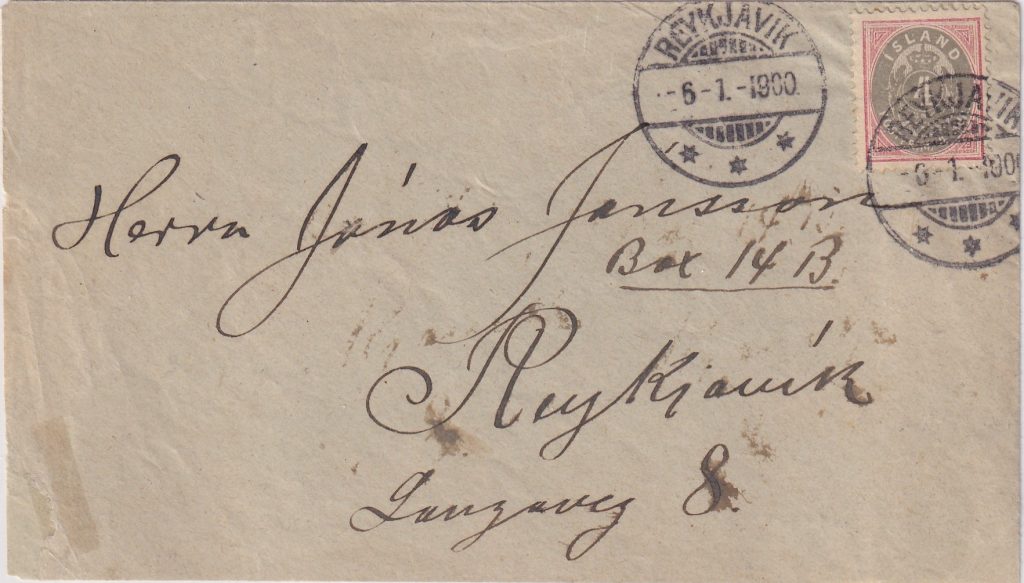 REYKJAVIK
-6-1.-1900.
ISLAND
4
REYKJAVIK
-6-1.-1900
Herrn Jónas Jonsson
Box 14 B.
Reykjavik
Laugaveg 8.